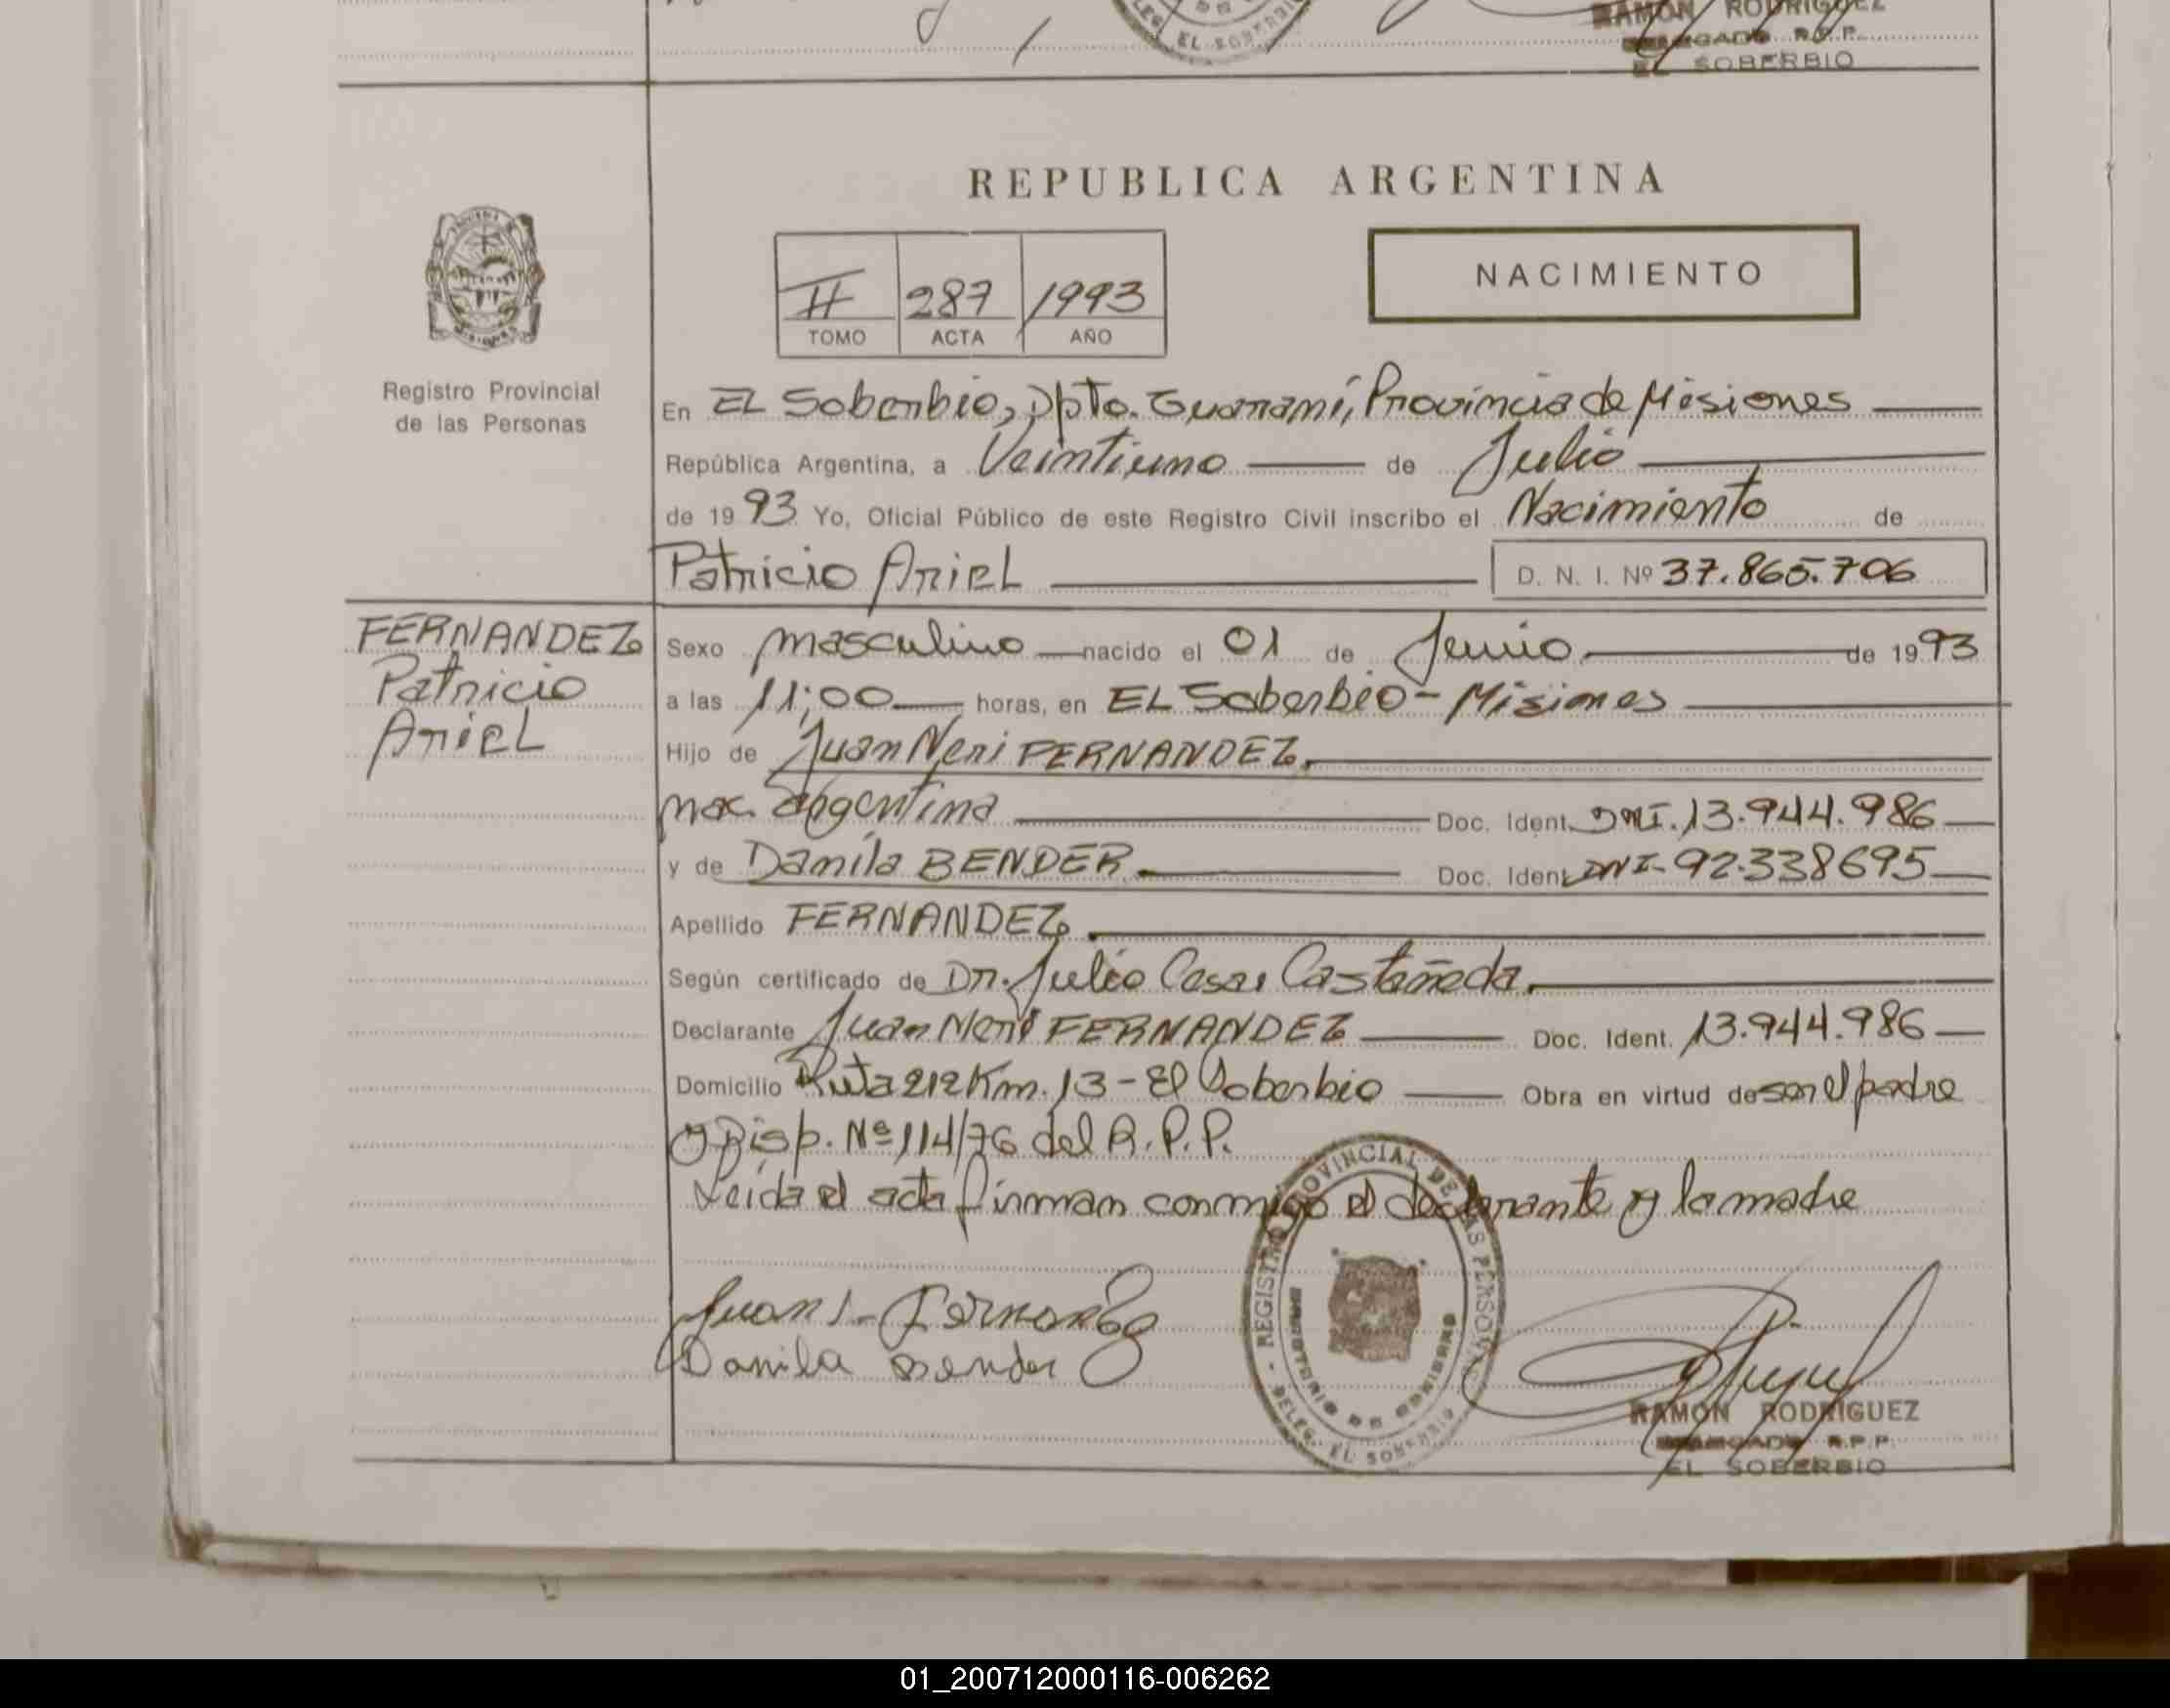 RAMON RODRIGUEZ
R.P.P.
EL SOBERBIO
EL SOBERBIO
REPUBLICA ARGENTINA
II 287 1993
TOMO ACTA AÑO
NACIMIENTO
Registro Provincial
de las Personas
En EL Soberbio, Dpto. Guaraní, Provincia de Misiones
República Argentina, a Veintiuno de Julio
de 1993 Yo, Oficial Público de este Registro Civil inscribo el Nacimiento de
Patricio Ariel D. N. I. Nº 37.865.706
FERNANDEZ
Patricio
Ariel
Sexo masculino nacido el 01 de Junio de 1993
a las 11;00 horas, en EL Soberbio - Misiones
Hijo de Juan Neri FERNANDEZ.
nac. argentina Doc. Ident. DNI. 13.944.986
y de Danila BENDER Doc. Ident. DNI- 92.338695
Apellido FERNANDEZ
Según certificado de Dr. Julio Cesar Castañeda.
Declarante Juan Neri FERNANDEZ Doc. Ident. 13.944.986
Domicilio Ruta 212 Km. 13 - El Soberbio Obra en virtud de ser el padre
y Disp. Nº 114/76 del R.P.P.
Leida el acta firman conmigo el declarante y la madre
Juan N. Fernandez
Danila Bender
- REGISTRO PROVINCIAL DE LAS PERSONAS -
MINISTERIO DE GOBIERNO
DELEG. EL SOBERBIO
RAMON RODRIGUEZ
R.P.P.
EL SOBERBIO
01_200712000116-006262